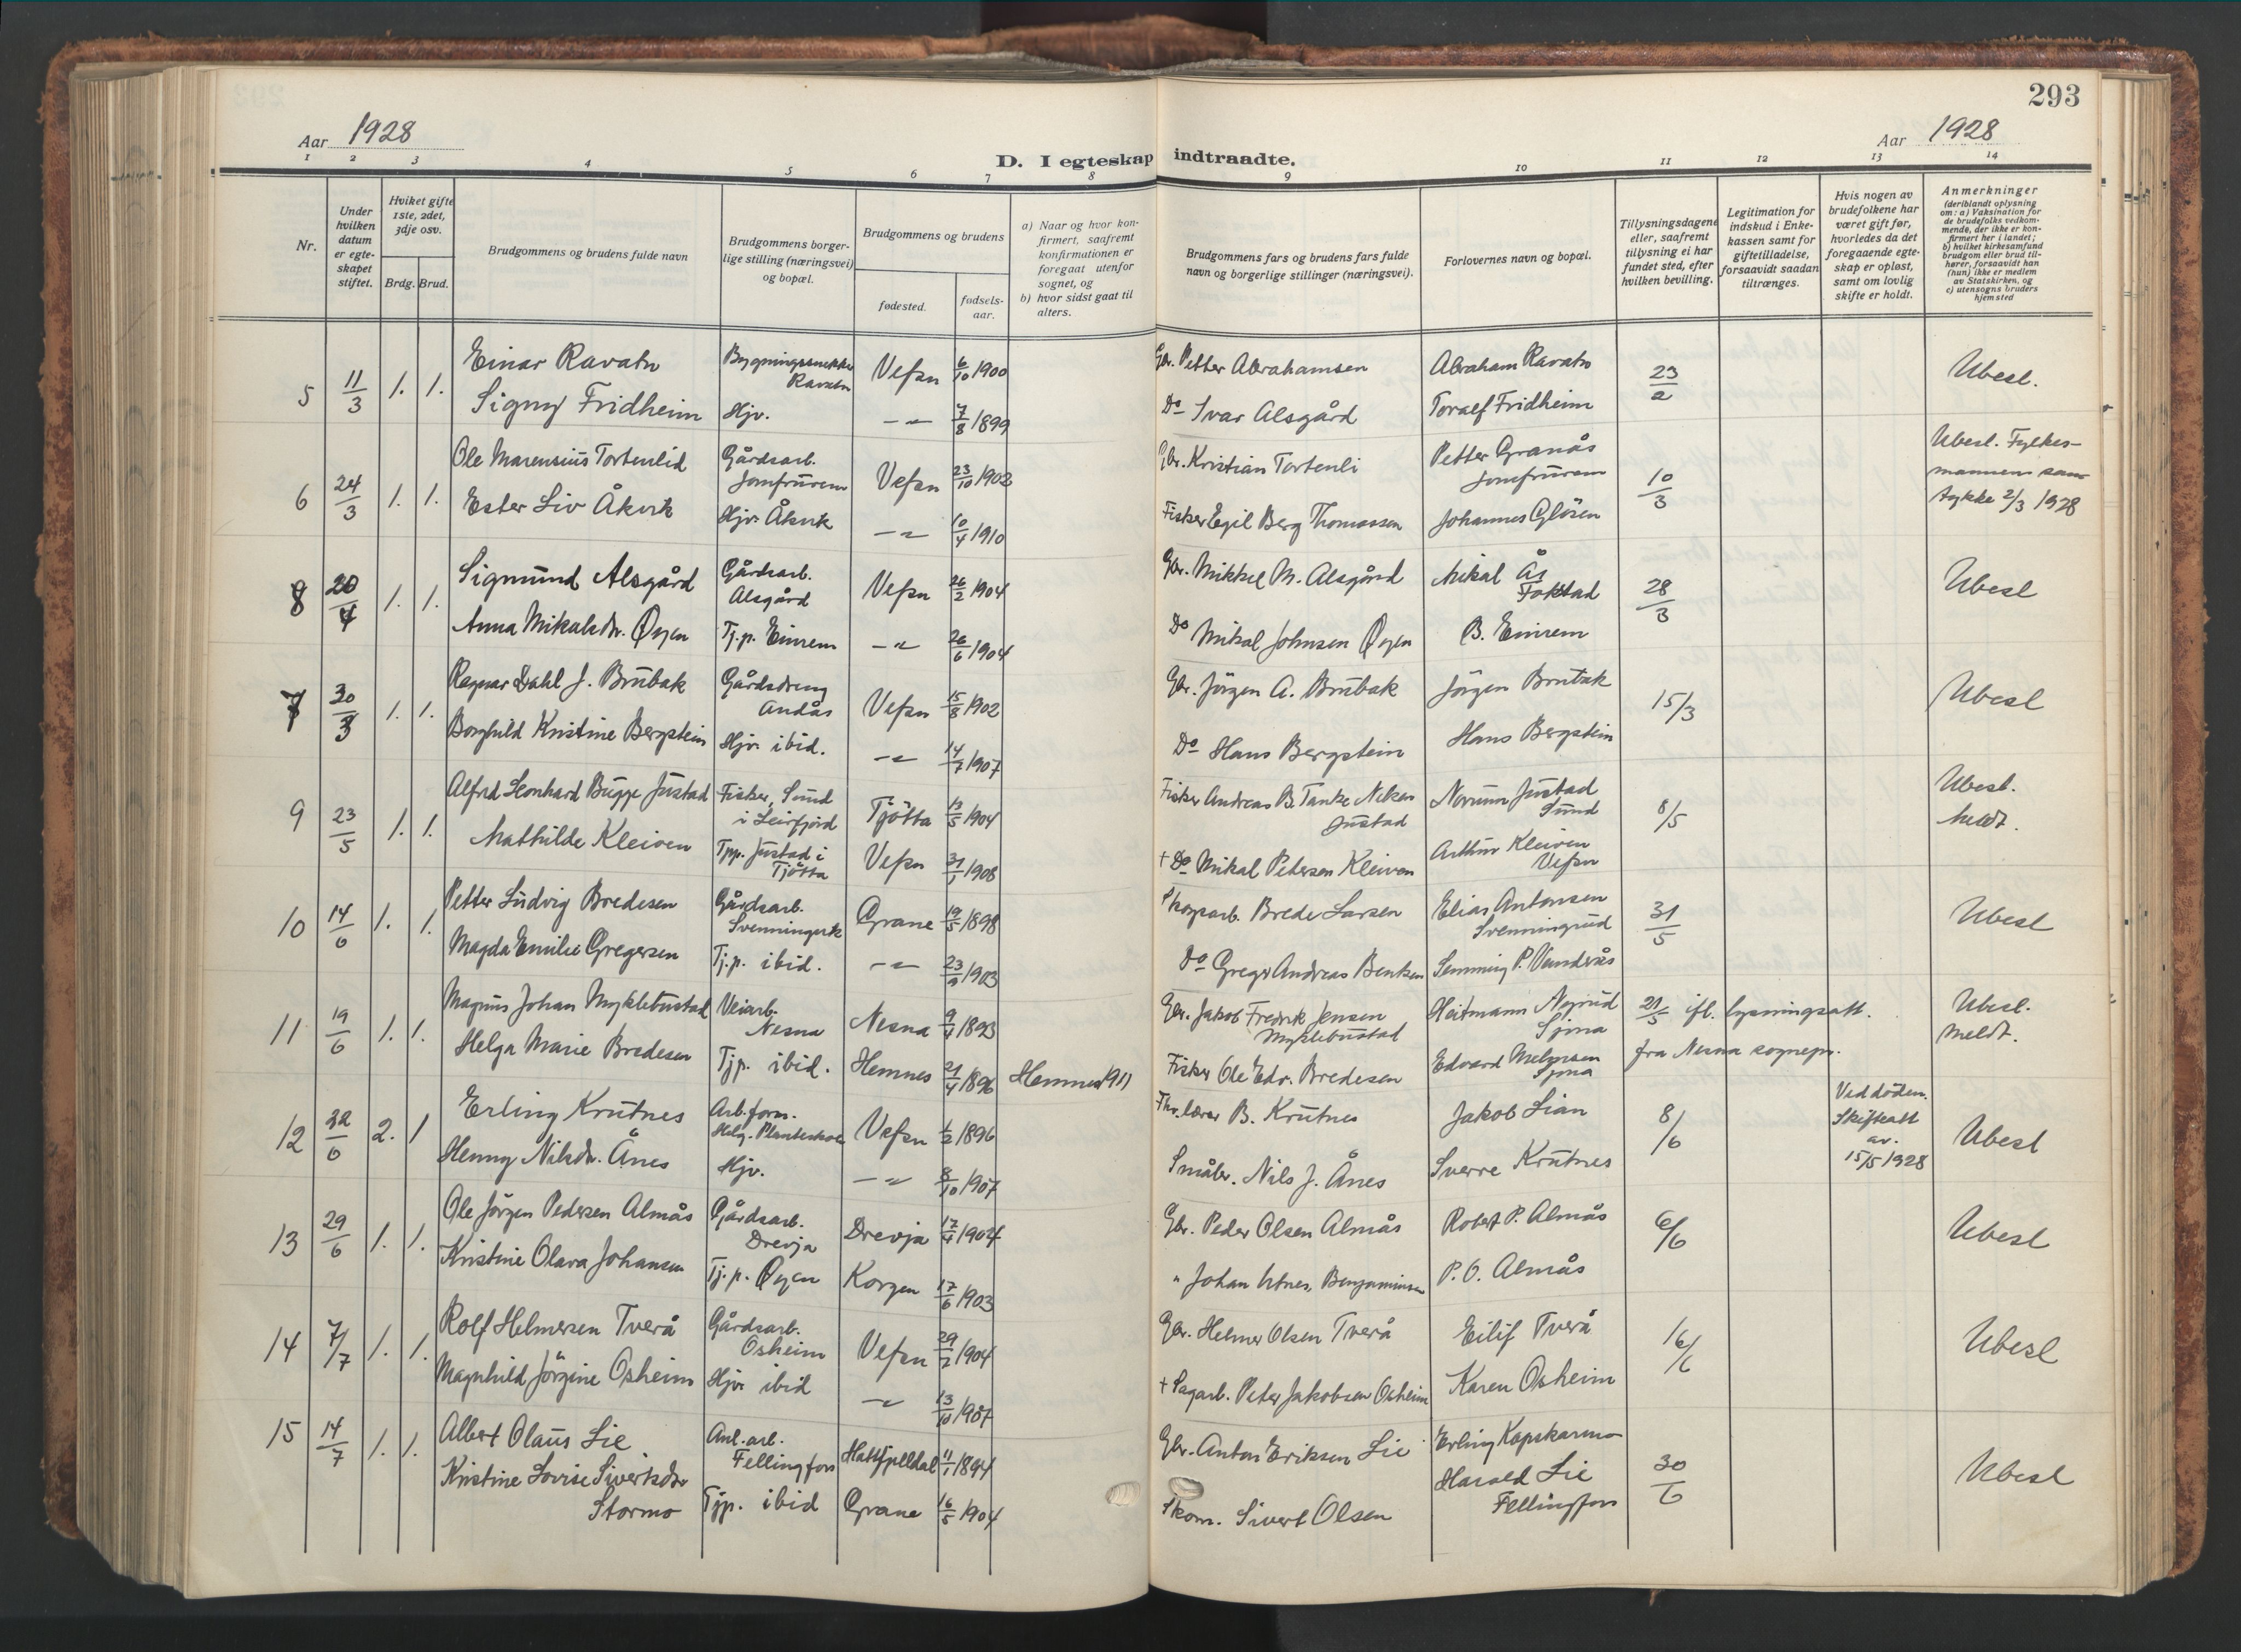 293
Aar 1928
Aar 1928
D. I egteskap indtraadte.
1 2 3 4 5 6 7 8 9 10 11 12 13 14
Nr.
Under hvilken datum er egteskapet stiftet.
Hviket gifte 1ste, 2det, 3dje osv.
Brdg. Brud.
Brudgommens og brudens fulde navn
Brudgommens borgerlige stilling (næringsvei) og bopæl.
Brudgommens og brudens
fødested.
fødselsaar.
a) Naar og hvor konfirmert, saafremt konfirmationen er foregaat utenfor sognet, og
b) hvor sidst gaat til alters.
Brudgommens fars og brudens fars fulde navn og borgerlige stillinger (næringsvei).
Forlovernes navn og bopæl.
Tillysningsdagene eller, saafremt tillysning ei har fundet sted, efter hvilken bevilling.
Legitimation for indskud i Enkekassen samt for giftetilladelse, forsaavidt saadan tiltrænges.
Hvis nogen av brudefolkene har været gift før, hvorledes da det foregaaende egteskap er opløst, samt om lovlig skifte er holdt.
Anmerkninger
(deriblandt oplysning om: a) Vaksination for de brudefolks vedkommende, der ikke er konfirmert her i landet;
b) hvilket kirkesamfund brudgom eller brud tilhører, forsaavidt han (hun) ikke er medlem av Statskirken, og
c) utensogns bruders hjemsted
5 11/3 1. 1. Einar Ravatn Bygningssnekker Ravatn Vefsn 6/10 1900 Gbr. Petter Abrahamsen Abraham Ravatn 23/2 Ubesl.
Signy Fridheim Hjv. -"- 7/8 1899 Do Ivar Alsgård Toralf Fridheim
6 24/3 1. 1. Ole Marensius Tortenlid Gårdsarb. Jomfrurem Vefsn 23/10 1902 Gbr. Kristian Tortenli Petter Granås Jomfrurem 10/3 Ubesl. Fylkesmannens samtykke 2/3 1928
Ester Liv Åkvik Hjv. Åkvik -"- 10/4 1910 Fisker Egil Berg Thomassen Johannes Glösen
8 20/4 1. 1. Sigmund Alsgård Gårdsarb. Alsgård Vefsn 26/2 1904 Gbr. Mikkel M. Alsgård Mikal Ås Toktad 28/3 Ubesl
Anna Mikalsdr. Øyen Tj.p. Einrem -"- 26/6 1904 Do Mikal Johnsen Øyen B. Einrem
7 30/3 1. 1. Ragnar Dahl J. Brubak Gårdsdreng Andås Vefsn 15/8 1902 Gbr. Jörgen A. Brubak Jörgen Brubak 15/3 Ubesl
Borghild Kristine Bergstein Hjv. ibid. -"- 14/7 1907 Do Hans Bergstein Hans Bergstein
9 23/5 1. 1. Alfred Leonhard Bugge Justad Fisker, Sund i Leirfjord Tjötta 13/5 1904 Fisker Andreas B. Tanke Justad Justad Sund 8/5 Ubesl. Meldt.
Mathilde Kleiven Tjp. Justad i Tjötta Vefsn 31/1 1908 + Do Mikal Petersen Kleiven Arthur Kleiven Vefsn
10 14/6 1. 1. Petter Ludvig Bredesen Gårdsarb. Grane 19/5 1898 Skogsarb. Brede Larsen Elias Antonsen Svenningrud 31/5 Ubesl
Magda Emilie Gregersen Tj.p. ibid. -"- 23/9 1903 Do Greger Andreas Bentsen
11 19/6 1. 1. Magnus Johan Myklebustad Veiarb. Nesna Nesna 9/4 1893 Gbr. Jakob Fredrik Jensen Myklebustad Heitmann Nyrud Sjona 21/5 ifl. lysningsatt. Ubesl. Meldt.
Helga Marie Bredesen Tjp. ibid. Hemnes 21/4 1896 Hemnes 1911 Fisker Ole Edv. Bredesen Edvard Sjona fra Nesna sognepr.
12 22/6 2. 1 Erling Krutnes Arb.form. Helg. Planteskole Vefsn 1/2 1896 Fhv. lærer B. Krutnes Jakob Lian 8/6 Ved døden. Skifteatt av. 15/5 1928 Ubesl
Henny Nilsdr. Ånes Hjv. -"- 8/10 1907 Småbr. Nils J. Ånes Sverre Krutnes
13 29/6 1. 1. Ole Jörgen Pedersen Almås Gårdsarb. Drevja Drevja 17/4 1904 Gbr. Peder Olsen Almås Robert P. Almås 6/6 Ubesl
Kristine Olava Johansen Tj.p. Øyen Korgen 17/6 1903 " Johan Utnes, Benjaminsen P. O. Almås
14 7/7 1. 1. Rolf Helmersen Tverå Gårdsarb. Osheim Vefsn 29/2 1904 Gbr. Helmer Olsen Tverå Eilif Tverå 16/6 Ubesl
Magnhild Jörgine Osheim Hjv. ibid -"- 13/10 1907 + Sagarb. Peter Jakobsen Osheim Karen Osheim
15 14/7 1. 1. Albert Olaus Lie Anl.arb. Fellingfors Hattfjelldal 11/1 1894 Gbr. Anton Eriksen Lie Erling Kapskarmo 30/6 Ubesl
Kristine Lovise Sivertsdr Stormo Tjp. ibid Grane 16/5 1904 Skom. Sivert Olsen Harald Lie Fellingfors